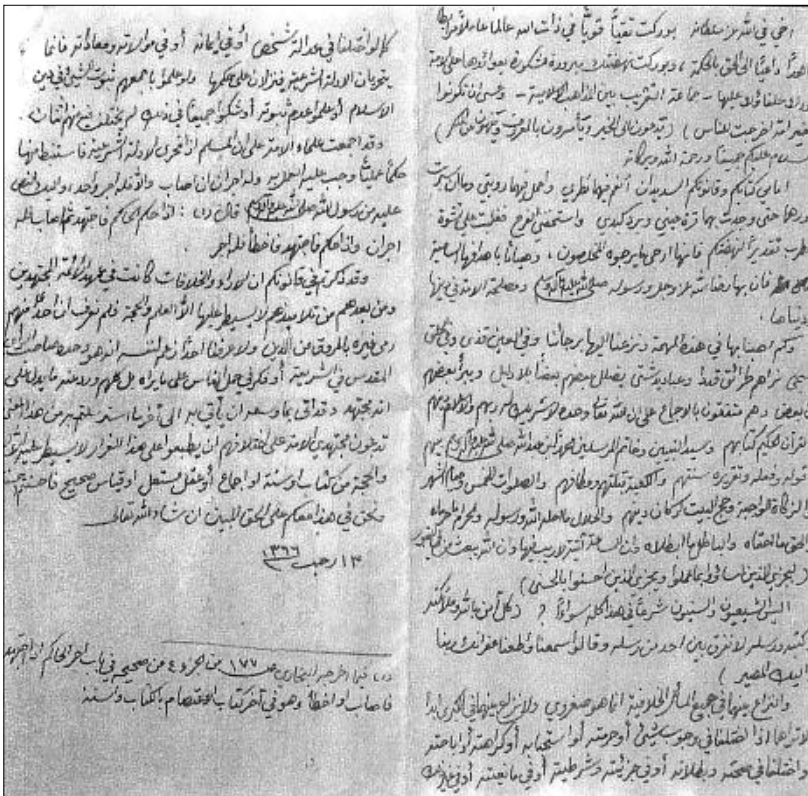 أخي في الله عز سلطانه بوركت تقياً قوياً في ذات الله عالماً عاملاً مرابطاً
مجاهداً داعياً إلى الحق بالحكمة ، وبوركت نهضتك مبرورة مشكورة بعوائدها على الأمة
جماعة التقريب بين المذاهب الإسلامية - وعسى أن تكونوا
خير أمة أخرجت للناس ) ( يدعون إلى الخير ويأمرون بالمعروف وينهون عن المنكر )
السلام عليكم جميعاً ورحمة الله وبركاته
أما بعد كتابكم وقانونكم السديدان أنعم فيهما نظري وأعمل فيهما رويتي وما إن سبرت
غورهما حتى وجدت بهما قرة عيني وبرد كبدي واستخفني الفرح فقلت على نشوة
الطرب تقديراً لنهضتكم فإنها أرجى ما يرجوه المخلصون ، وحبانا بأهدافها السامية
فإن بها رضا الله عز وجل ورسوله صلى الله عليه وآله وسلم ومصلحة الأمة في دينها
ودنياها .
وكم أهبنا بها في هذه المهمة ونزعنا إليها برجائنا وفي العين قذى وفي الحلق
شجى نراهم طرائق قدداً وعباديد شتى يضلل بعضهم بعضاً بلا دليل ويبرأ بعضهم
من بعض وهم متفقون بالإجماع على أن الله تعالى وحده لا شريك له ربهم والإسلام دينهم
والقرآن الحكيم كتابهم وسيد النبيين وخاتم المرسلين محمداً بن عبدالله صلى الله عليه وآله وسلم نبيهم
وقوله وفعله وتقريره سنتهم والكعبة قبلتهم ومطافهم والصلوات الخمس وصيام الشهر
والزكاة الواجبة وحج البيت أركان دينهم والحلال ما أحله الله ورسوله والحرام ما حرماه
والحق ما أحقاه والباطل ما أبطلاه وأن الساعة آتية لا ريب فيها وأن الله يبعث من في القبور
( ليجزي الذين أساؤا بما عملوا ويجزي الذين أحسنوا بالحسنى )
أليس الشيعيون والسنيون شرعاً في هذا كله سواءً ؟ ( كل آمن بالله وملائكته
وكتبه ورسله لا نفرق بين أحد من رسله وقالوا سمعنا وأطعنا غفرانك ربنا
وإليك المصير )
والنزاع بينهما في جميع المسائل الخلافية إنما هو صغروي ولا نزاع بينهما في الكبرى أبداً
ألا تراهما إذا اختلفا في وجوب شيء أو حرمته أو استحبابه أو كراهته أو إباحته
واختلفا في صحته وبطلانه أو في جزئيته وشرطيته أو في مانعيته أو في غير ذلك
كما لو اختلفا في عدالة شخص أو في إيمانه أو في موالاته ومعاداته فإنما
يتحريان الأدلة الشرعية فينزلان على حكمها ولو علموا بأجمعهم ثبوت الشيء في دين
الإسلام أو علموا عدم ثبوته أو شكوا جميعاً في ذلك لم يختلف فيه منهم اثنان .
وقد أجمعت علماء الأمة على أن المسلم إذا تحرى الأدلة الشرعية فاستنبط منها
حكماً عملياً وجب عليه العمل به وله أجران إن أصاب وإلا فله أجر واحد وإليك النص
عليه من رسول الله صلى الله عليه وآله وسلم قال (١) : إذا حكم الحاكم فاجتهد ثم أصاب فله
أجران وإذا حكم فاجتهد فأخطأ فله أجر .
وقد ذكرتم في قانونكم أن الآراء والخلافات كانت في عهد الأئمة المجتهدين
ومن بعدهم من تلاميذهم لا يسيطر عليها إلا العلم والحجة فلم نعرف أن أحداً منهم
رمى غيره بالمروق من الدين ولا عرفنا أحداً زعم لنفسه أنه وحده صاحب الرأي
المقدس في الشريعة أو فكر في حمل الناس على ما يراه بل كلهم ورد عنه ما يدل على
أنه مجتهد وقد أتى بما وسعه أن يأتي به إلى آخر ما استرسلتم به من هذا المعنى
تدعون مجتهدي الأمة على اختلافهم أن يطبعوا على هذا الغرار لا يسيطر عليهم إلا
والحجة من كتاب أو سنة أو إجماع أو عقل مستقل أو قياس صحيح
ونحن في هذا معكم على الحق المبين إن شاء الله تعالى
١٣ رجب ١٣٦٦
(١) فيما أخرجه البخاري ص ١٧٧ من الجزء ٤ من صحيحه في باب أجر الحاكم إذا اجتهد
فأصاب أو أخطأ وهو في آخر كتاب الاعتصام بالكتاب والسنة